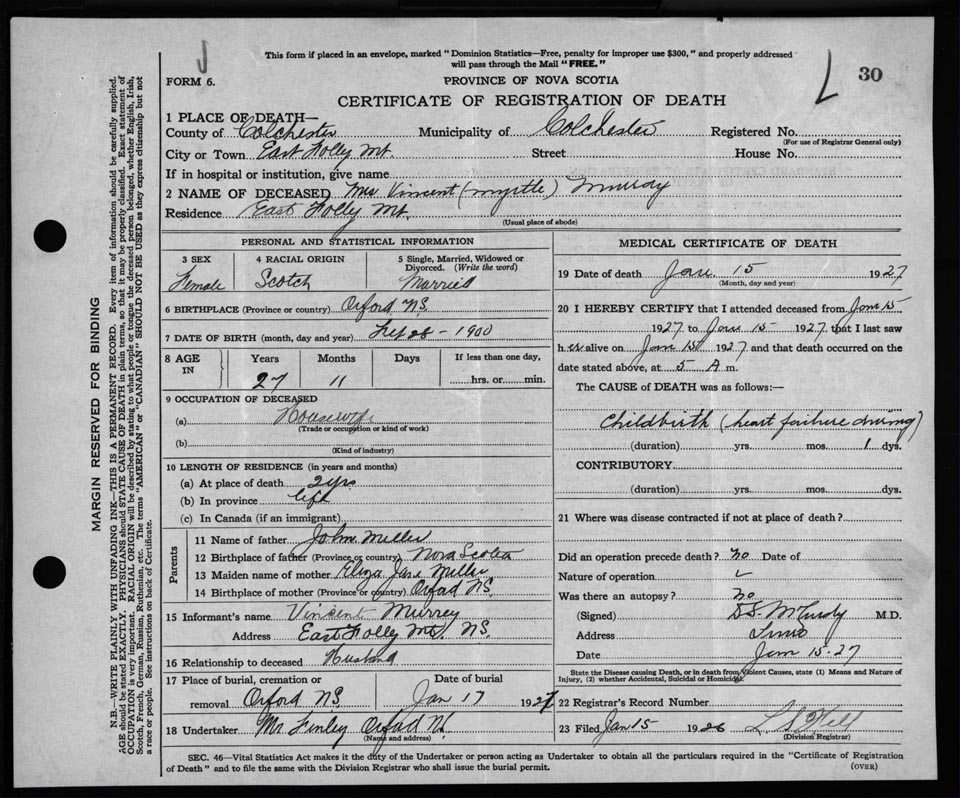 This form if placed in an envelope, marked "Dominion Statistics—Free, penalty for improper use $300," and properly addressed
will pass through the Mail "FREE."
30
FORM 6.
PROVINCE OF NOVA SCOTIA
CERTIFICATE OF REGISTRATION OF DEATH
1 PLACE OF DEATH—
County of Colchester Municipality of Colchester Registered No.
(For use of Registrar General only)
City or Town East Folly Mt. Street House No.
If in hospital or institution, give name
2 NAME OF DECEASED Mrs Vincent (Myrtle) Murray
Residence East Folly Mt.
(Usual place of abode)
PERSONAL AND STATISTICAL INFORMATION
3 SEX 4 RACIAL ORIGIN 5 Single, Married, Widowed or
Divorced. (Write the word)
Female Scotch Married
6 BIRTHPLACE (Province or country) Oxford N.S.
7 DATE OF BIRTH (month, day and year) 28 - 1900
8 AGE IN Years Months Days If less than one day,
27 11 hrs. or min.
9 OCCUPATION OF DECEASED
(a) Housewife
(Trade or occupation or kind of work)
(b)
(Kind of industry)
10 LENGTH OF RESIDENCE (in years and months)
(a) At place of death 2 yrs
(b) In province life
(c) In Canada (if an immigrant)
Parents
11 Name of father John Miller
12 Birthplace of father (Province or country) Nova Scotia
13 Maiden name of mother Eliza Jane Miller
14 Birthplace of mother (Province or country) Oxford N.S.
15 Informant's name Vincent Murrey
Address East Folly Mt N.S.
16 Relationship to deceased Husband
17 Place of burial, cremation or Date of burial
removal Oxford N.S. Jan 17 1927
18 Undertaker Mr Finley Oxford N.S.
(Name and address)
MEDICAL CERTIFICATE OF DEATH
19 Date of death Jan. 15 1927
(Month, day and year)
20 I HEREBY CERTIFY that I attended deceased from Jan 15
1927 to Jan 15 1927, that I last saw
h er alive on Jan 15 1927 and that death occurred on the
date stated above, at 5 A m.
The CAUSE OF DEATH was as follows:—
Childbirth (heart failure during)
(duration) yrs. mos. 1 dys.
CONTRIBUTORY
(duration) yrs. mos. dys.
21 Where was disease contracted if not at place of death?
Did an operation precede death? no Date of
Nature of operation
Was there an autopsy? no
(Signed) D.S. McCurdy M.D.
Address Truro
Date Jan 15-27
State the Disease causing Death, or in death from Violent Causes, state (1) Means and Nature of
Injury, (2) whether Accidental, Suicidal or Homicidal.
22 Registrar's Record Number
23 Filed Jan 15 1926
(Division Registrar)
SEC. 46—Vital Statistics Act makes it the duty of the Undertaker or person acting as Undertaker to obtain all the particulars required in the "Certificate of Registration
of Death" and to file the same with the Division Registrar who shall issue the burial permit.
(OVER)
MARGIN RESERVED FOR BINDING
N.B.—WRITE PLAINLY WITH UNFADING INK—THIS IS A PERMANENT RECORD. Every item of information should be carefully supplied.
AGE should be stated EXACTLY. PHYSICIANS should STATE CAUSE OF DEATH in plain terms, so that it may be properly classified. Exact statement of
OCCUPATION is very important. RACIAL ORIGIN will be described by stating to what people or tongue the deceased person belonged, whether English, Irish,
Scotch, French, German, Russian, Ruthenian, etc. The terms "AMERICAN" or "CANADIAN" SHOULD NOT BE USED as they express citizenship but not
a race or people. See instructions on back of Certificate.